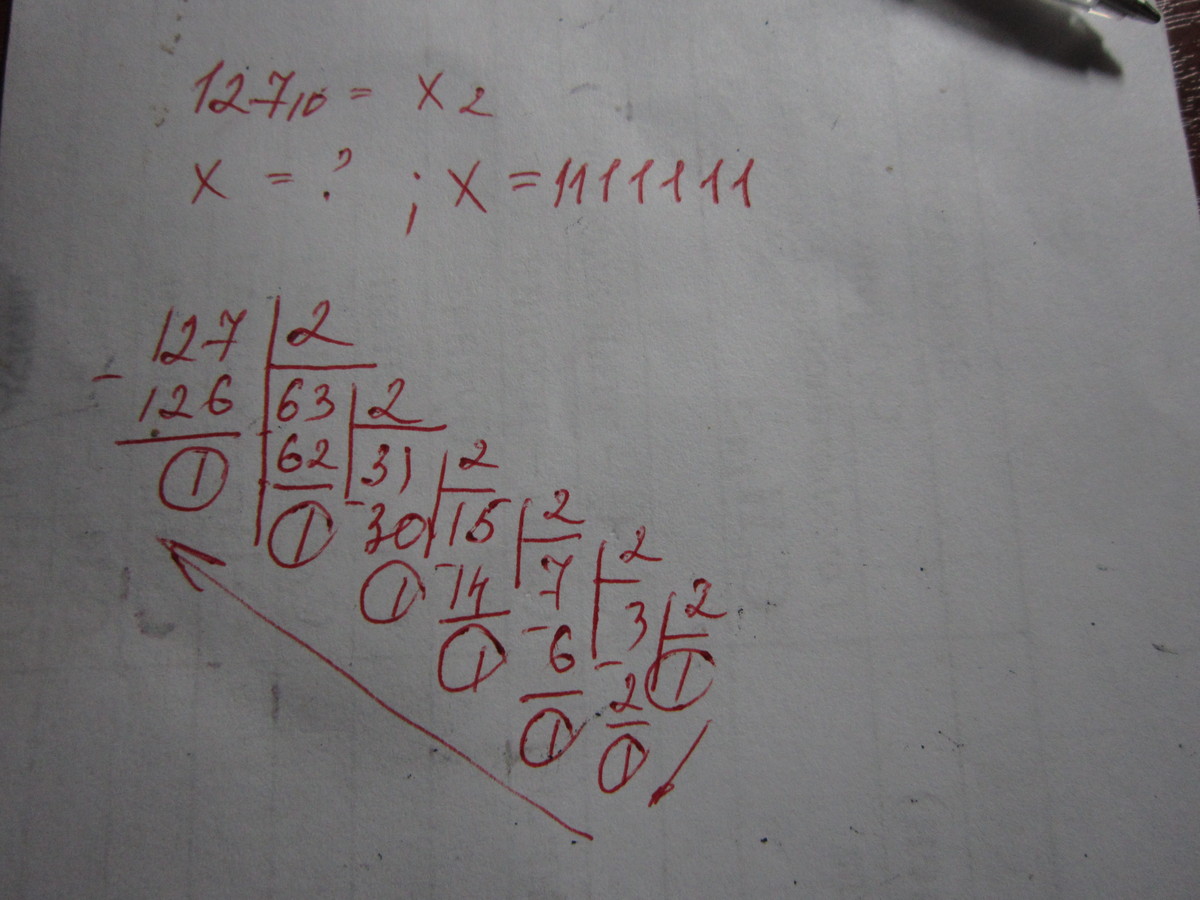 127₁₀ = X₂
X = ? ; X = 1111111
127 | 2
- 126 | 63 | 2
1 | 62 | 31 | 2
1 - 30 | 15 | 2
1 - 14 | 7 | 2
1 - 6 | 3 | 2
1 - 2 | 1
1